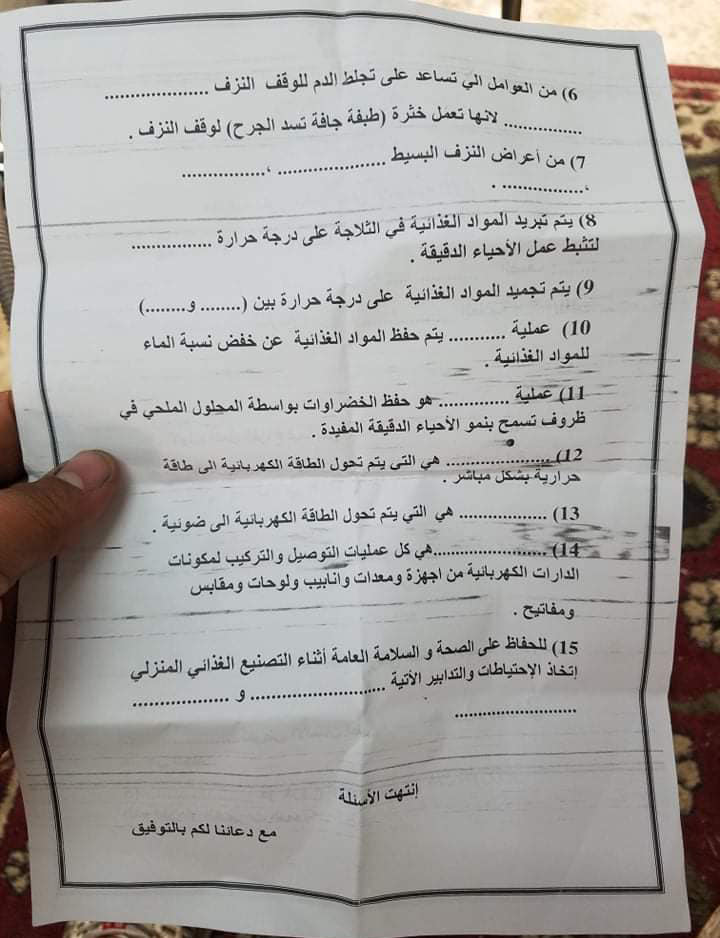 6) من العوامل الي تساعد على تجلط الدم للوقف النزف ....................
............... لانها تعمل خثرة (طبقة جافة تسد الجرح) لوقف النزف .
7) من أعراض النزف البسيط .................... ،................
،............... .
8) يتم تبريد المواد الغذائية في الثلاجة على درجة حرارة ...............
لتثبط عمل الأحياء الدقيقة .
9) يتم تجميد المواد الغذائية على درجة حرارة بين (........ و........)
10) عملية ........... يتم حفظ المواد الغذائية عن خفض نسبة الماء
للمواد الغذائية .
11) عملية .............. هو حفظ الخضراوات بواسطة المحلول الملحي في
ظروف تسمح بنمو الأحياء الدقيقة المفيدة .
12) .................... هي التى يتم تحول الطاقة الكهربائية الى طاقة
حرارية بشكل مباشر .
13) ................. هي التي يتم تحول الطاقة الكهربائية الى ضوئية .
14) ......................هي كل عمليات التوصيل والتركيب لمكونات
الدارات الكهربائية من اجهزة ومعدات وانابيب ولوحات ومقابس
ومفاتيح .
15) للحفاظ على الصحة و السلامة العامة أثناء التصنيع الغذائي المنزلي
إتخاذ الإحتياطات والتدابير الأتية .......................... و ...................
........................
إنتهت الأسئلة
مع دعائنا لكم بالتوفيق